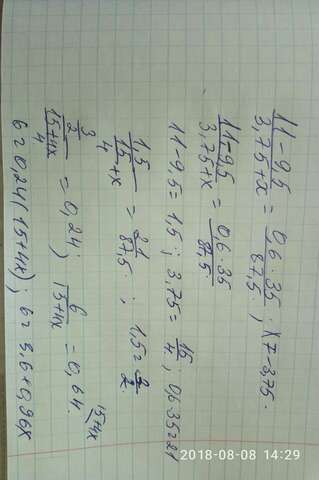 11-9,5/3,75+x = 06·35/87,5 ; x≠-3,75.
11-9,5/3,75+x = 06·35/87,5
11-9,5=15; 3,75=15/4; 06·35=21
1,5/15/4+x = 21/87,5 ; 1,5=3/2
3/2/15+4x/4 = 0,24; 6/15+4x = 0,64. 15+4x
6=0,24(15+4x); 6=3,6+0,96x
2018-08-08 14:29